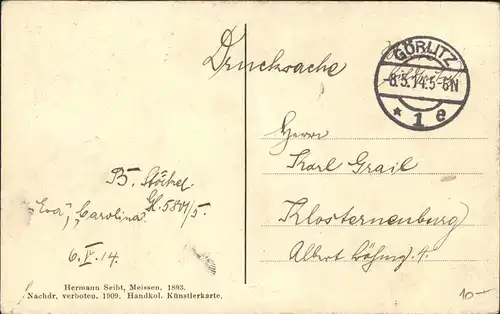 Drucksache
GÖRLITZ
-8.5.14.5-6N
* 1 e
Herrn
Karl Grail
Klosterneuburg
Albert Böhmg. 4.
B. Stöckel
Gl. 5801/5.
"Eva", "Carolina"
6.V.14
Hermann Seibt, Meissen. 1893.
Nachdr. verboten. 1909. Handkol. Künstlerkarte.
10-